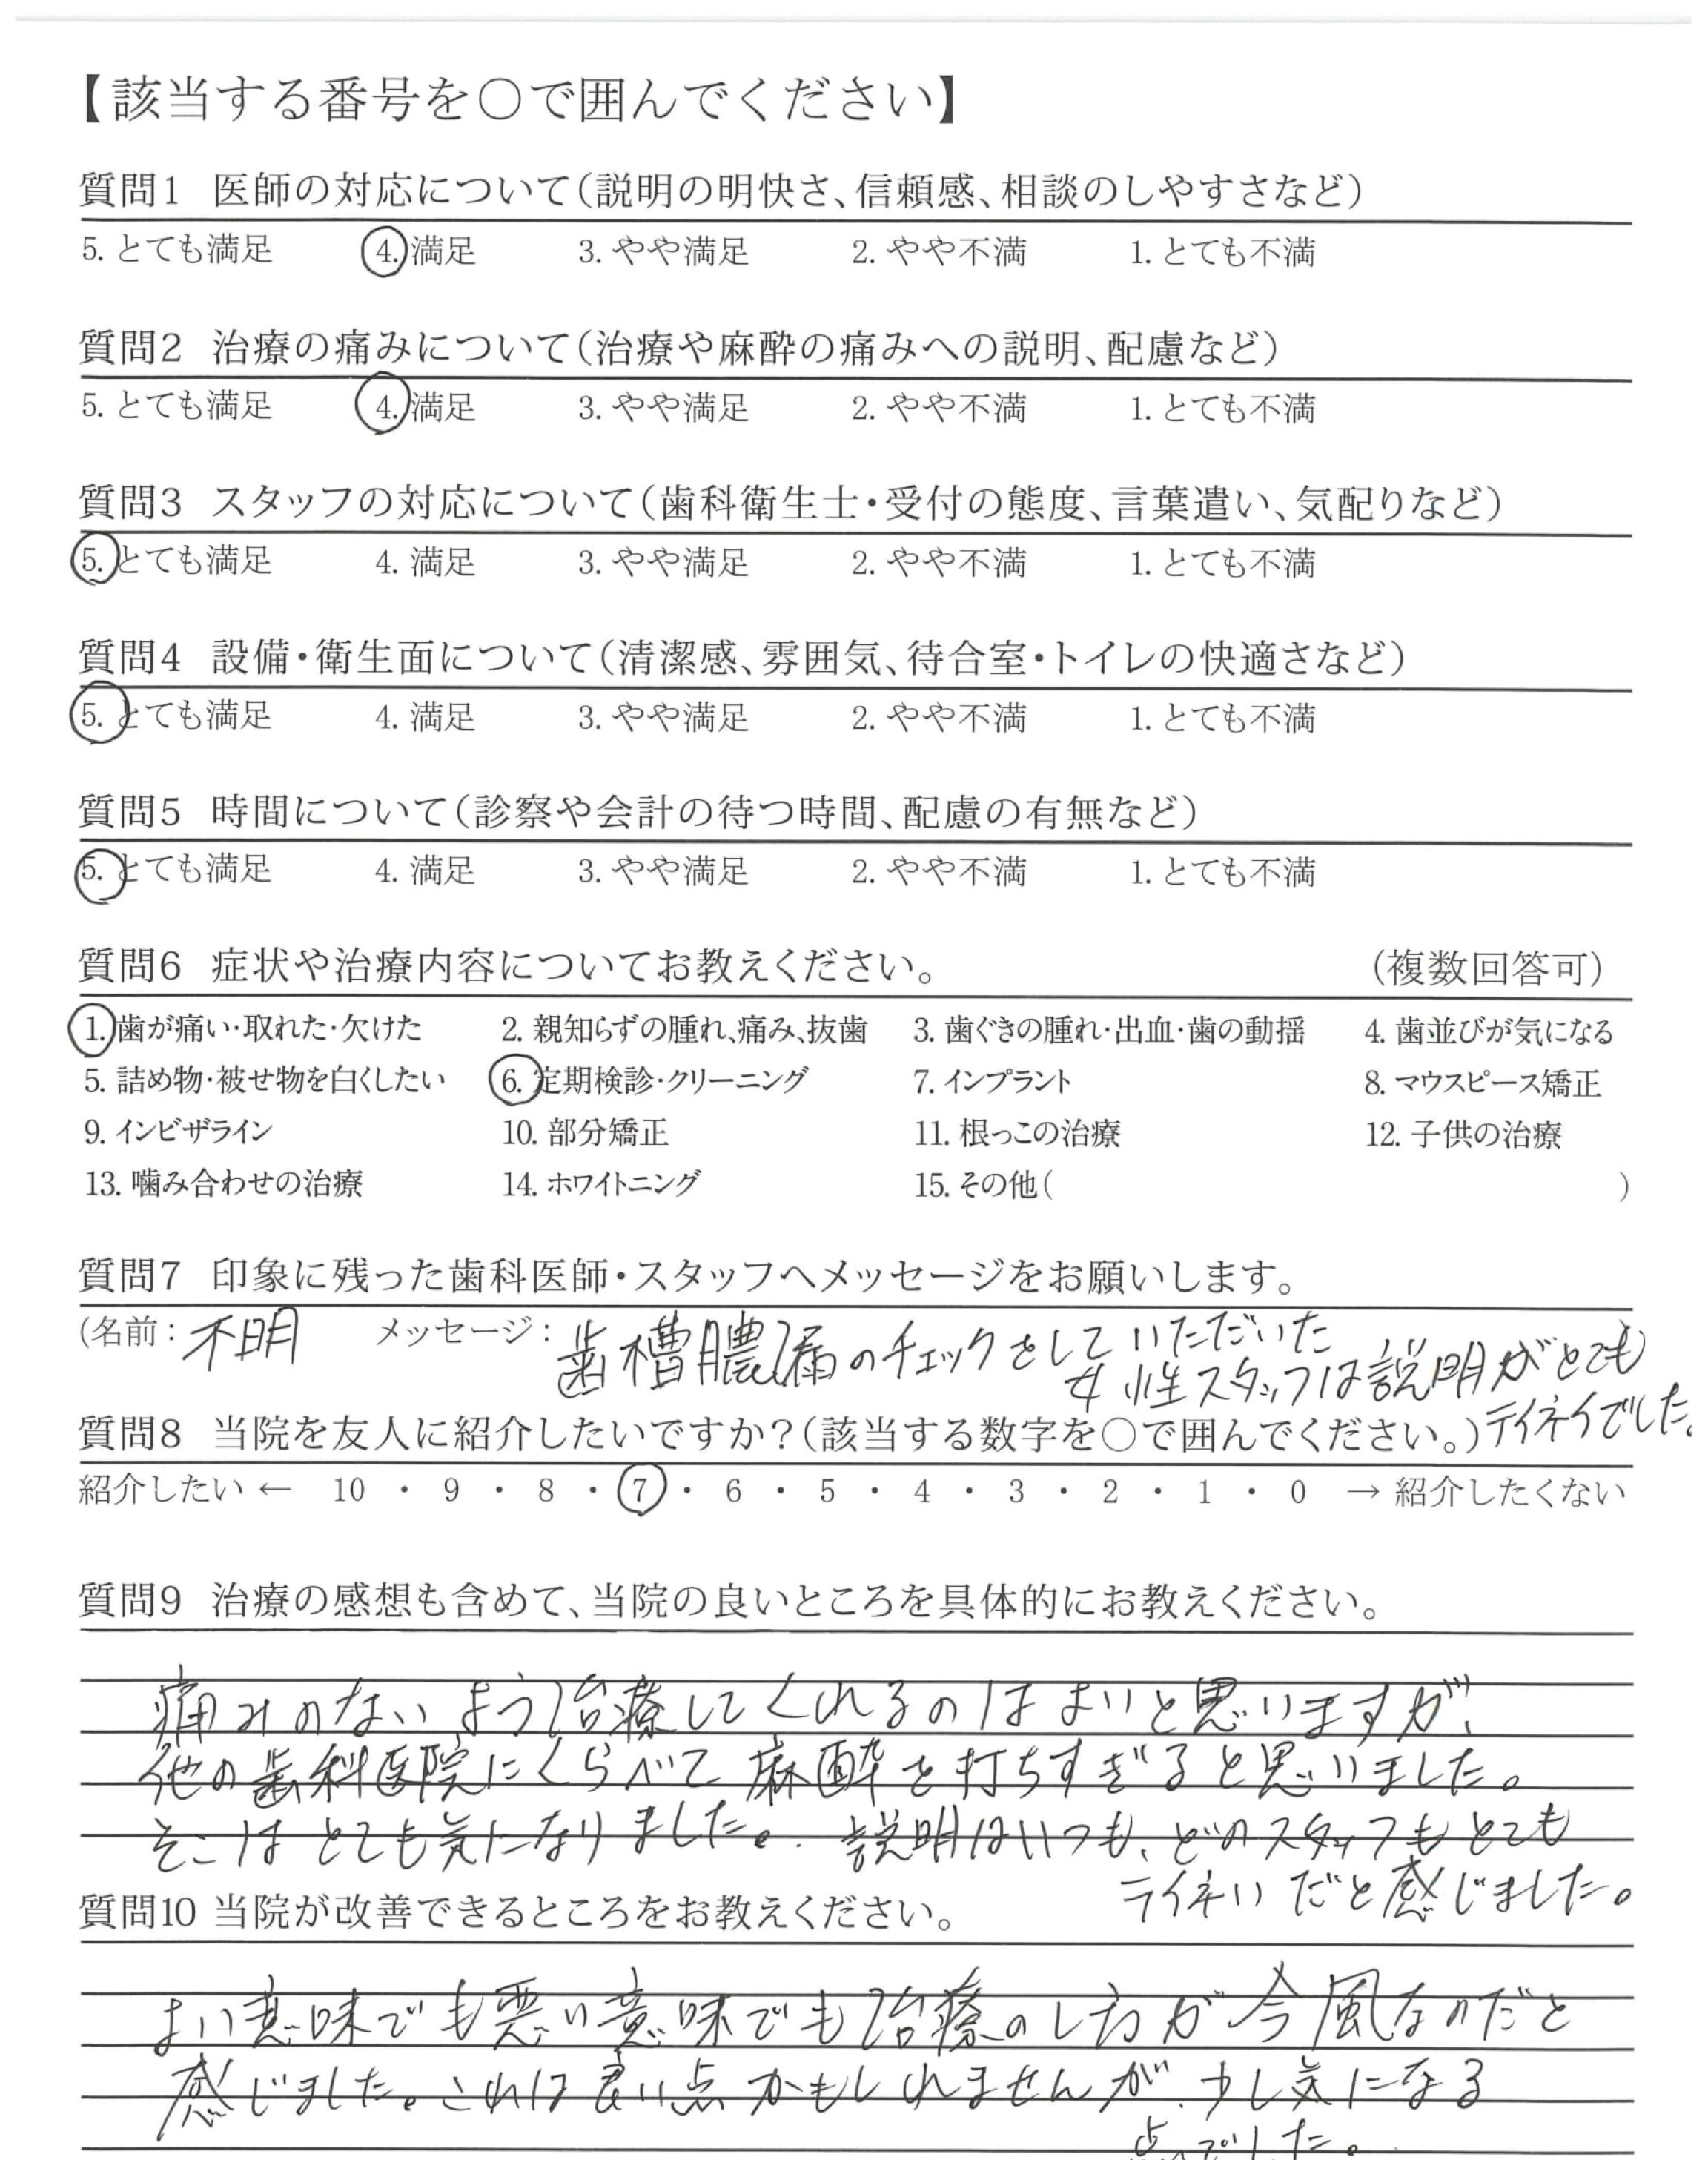 【該当する番号を○で囲んでください】
質問1 医師の対応について（説明の明快さ、信頼感、相談のしやすさなど）
5. とても満足 4. 満足 3. やや満足 2. やや不満 1. とても不満
質問2 治療の痛みについて（治療や麻酔の痛みへの説明、配慮など）
5. とても満足 4. 満足 3. やや満足 2. やや不満 1. とても不満
質問3 スタッフの対応について（歯科衛生士・受付の態度、言葉遣い、気配りなど）
5. とても満足 4. 満足 3. やや満足 2. やや不満 1. とても不満
質問4 設備・衛生面について（清潔感、雰囲気、待合室・トイレの快適さなど）
5. とても満足 4. 満足 3. やや満足 2. やや不満 1. とても不満
質問5 時間について（診察や会計の待つ時間、配慮の有無など）
5. とても満足 4. 満足 3. やや満足 2. やや不満 1. とても不満
質問6 症状や治療内容についてお教えください。 （複数回答可）
1. 歯が痛い・取れた・欠けた 2. 親知らずの腫れ、痛み、抜歯 3. 歯ぐきの腫れ・出血・歯の動揺 4. 歯並びが気になる
5. 詰め物・被せ物を白くしたい 6. 定期検診・クリーニング 7. インプラント 8. マウスピース矯正
9. インビザライン 10. 部分矯正 11. 根っこの治療 12. 子供の治療
13. 噛み合わせの治療 14. ホワイトニング 15. その他（ ）
質問7 印象に残った歯科医師・スタッフへメッセージをお願いします。
（名前：不明 メッセージ：歯槽膿漏のチェックをしていただいた
女性スタッフは説明がとても
テイネイでした。
質問8 当院を友人に紹介したいですか？（該当する数字を○で囲んでください。）
紹介したい ← 10 ・ 9 ・ 8 ・ 7 ・ 6 ・ 5 ・ 4 ・ 3 ・ 2 ・ 1 ・ 0 → 紹介したくない
質問9 治療の感想も含めて、当院の良いところを具体的にお教えください。
痛みのないよう治療してくれるのはよいと思いますが、
他の歯科医院にくらべて麻酔を打ちすぎると思いました。
そこはとても気になりました。説明はいつも、どのスタッフもとても
テイネいだと感じました。
質問10 当院が改善できるところをお教えください。
よい意味でも悪い意味でも治療のし方が今風なのだと
感じました。これは良い点かもしれませんが、少し気になる
点でした。